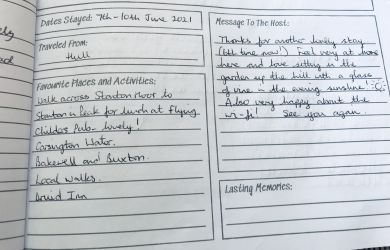 Dates Stayed: 7th - 10th June 2021
Traveled From:
Hull
Favourite Places and Activities:
Walk across Stanton Moor to
Stanton in Peak for lunch at Flying
Childers Pub - lovely!
Carsington Water.
Bakewell and Buxton.
Local walks.
Druid Inn
Message To The Host:
Thanks for another lovely stay
(6th time now!) Feel very at home
here and love sitting in the
garden up the hill with a glass
of wine in the evening sunshine!
Also very happy about the
wi-fi! See you again.
Lasting Memories: